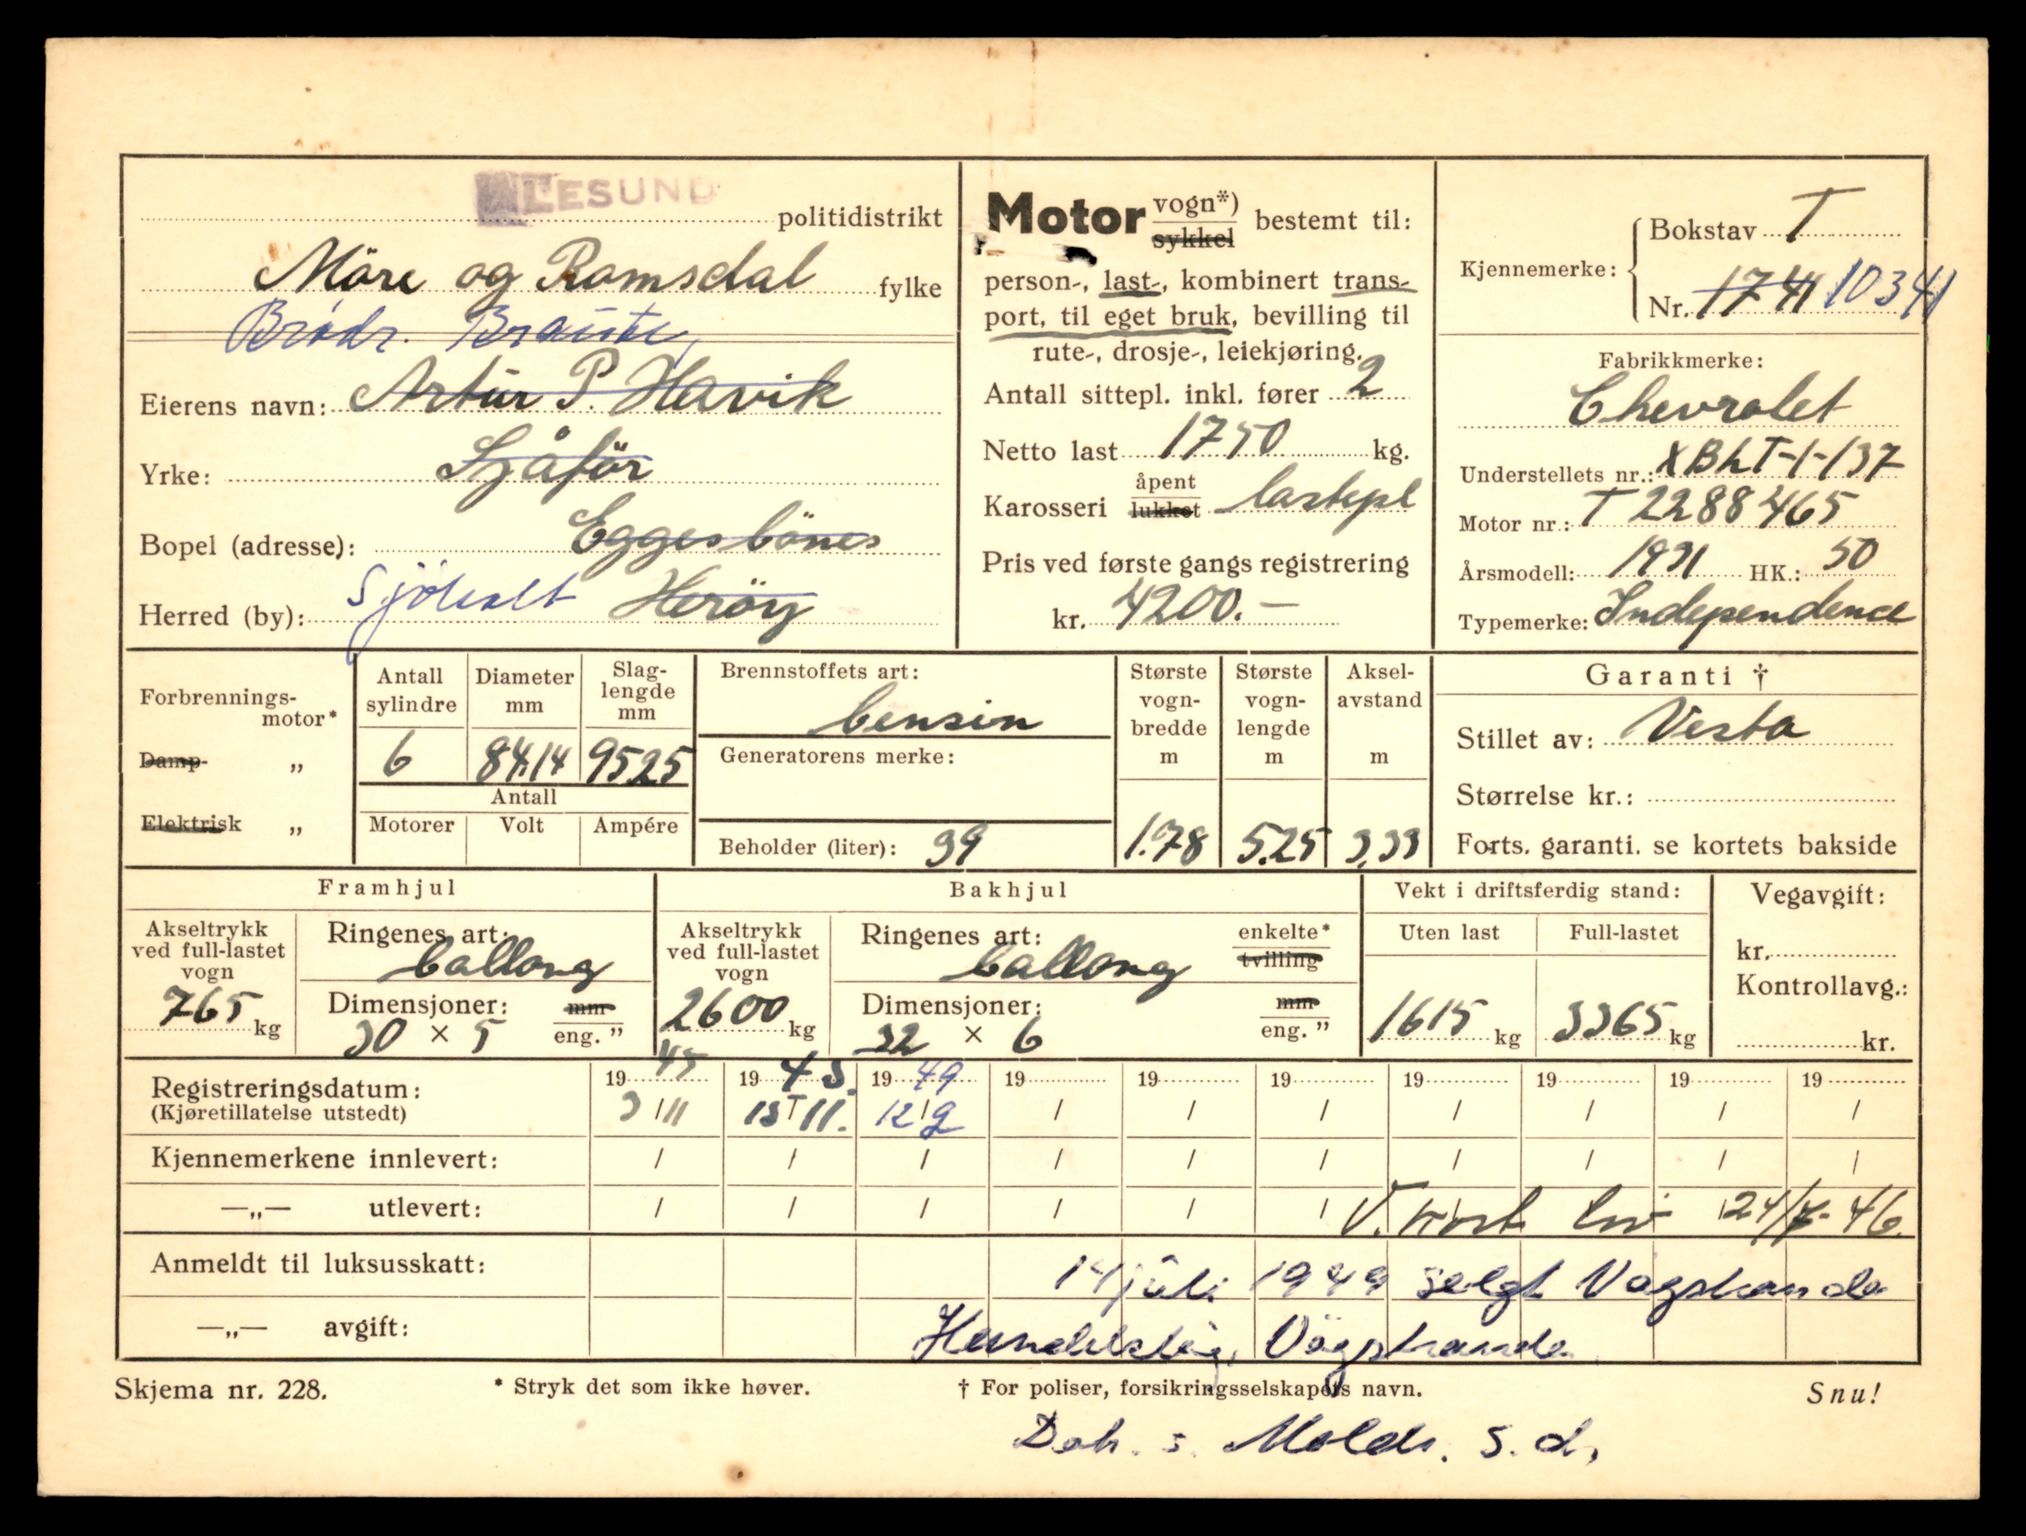 ÅLESUND politidistrikt
Möre og Romsdal fylke
Brødr. Braute,
Eierens navn: Artur P. Havik
Yrke: Sjåför
Bopel (adresse): Eggesbönes
Herred (by): Sjöholt Heröy
Motor vogn*) sykkel bestemt til:
person-, last-, kombinert trans-
port, til eget bruk, bevilling til
rute-, drosje-, leiekjøring.
Antall sittepl. inkl. fører 2
Netto last 1750 kg.
Karosseri åpent lukket lastepl
Pris ved første gangs registrering
kr. 4200.—
Kjennemerke: Bokstav T
Nr. 1741 10341
Fabrikkmerke:
Chevrolet
Understellets nr.: XBLT-1-137
Motor nr.: T 2288465
Årsmodell: 1931 HK.: 50
Typemerke: Independence
Forbrennings-motor*
Damp- „
Elektrisk „
Antall sylindre 6
Diameter mm 84.14
Slag-lengde mm 95.25
Antall
Motorer Volt Ampére
Brennstoffets art: bensin
Generatorens merke:
Beholder (liter): 39
Største vogn-bredde m 1.78
Største vogn-lengde m 5.25
Aksel-avstand m 3.33
Garanti †
Stillet av: Vesta
Størrelse kr.:
Forts. garanti. se kortets bakside
Framhjul
Akseltrykk ved full-lastet vogn 765 kg
Ringenes art: ballong
Dimensjoner: 30 × 5 mm eng. "
Bakhjul
Akseltrykk ved full-lastet vogn 2600 kg
Ringenes art: ballong enkelte* tvilling
Dimensjoner: 32 × 6 mm eng. "
Vekt i driftsferdig stand:
Uten last 1615 kg
Full-lastet 3365 kg
Vegavgift:
kr.
Kontrollavg.:
kr.
Registreringsdatum: 19 45 19 45. 19 49 19 19 19 19 19 19 19
(Kjøretillatelse utstedt) 3/11 13/11. 12/9 / / / / / / /
Kjennemerkene innlevert: / / / / / / / / / /
—„— utlevert: / / / / / / 24/7-46.
Anmeldt til luksusskatt: 14 juli 1949 selgt Vågstranda
—„— avgift: Handelslag, Vågstranda
Skjema nr. 228. * Stryk det som ikke høver. † For poliser, forsikringsselskapets navn. Snu!
s. Molde. s. d.